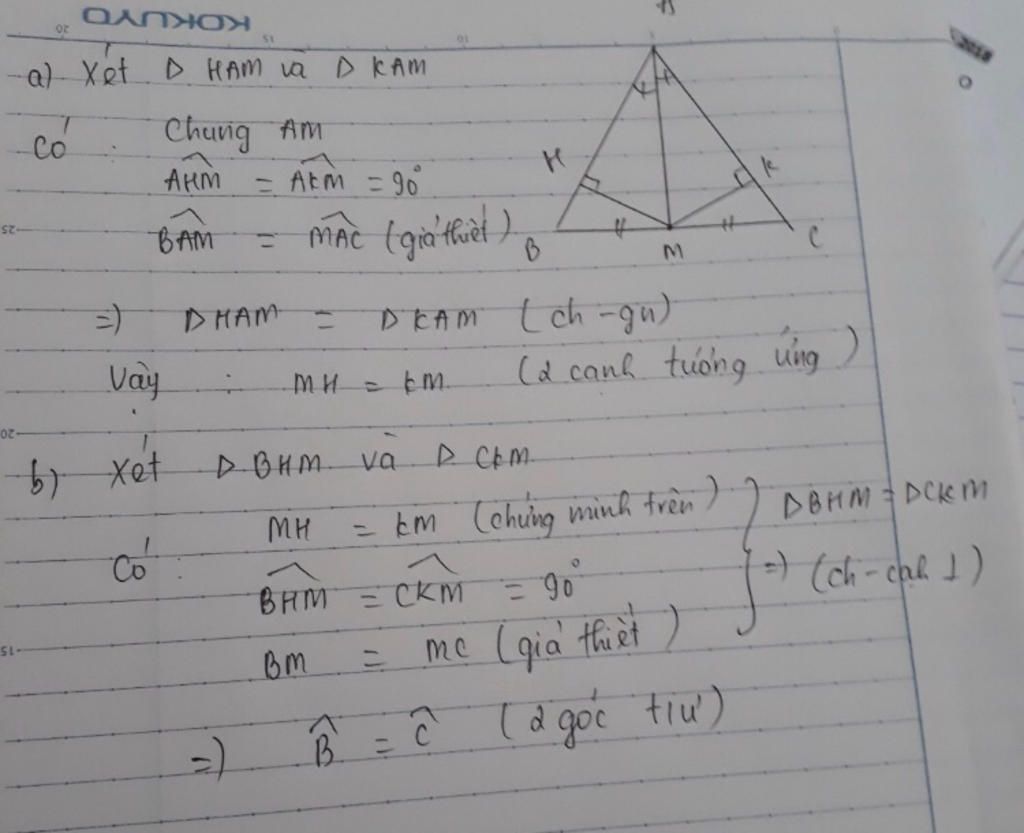 KOKUYO
20 15 10
a) Xét Δ HAM và Δ KAM
Có : Chung AM
AHM = AKM = 90°
BAM = MAC (giả thiết)
=) Δ HAM = Δ KAM (ch - gn)
Vậy : MH = KM (2 cạnh tướng ứng)
b) Xét Δ BHM và Δ CKM
Có : MH = KM (chứng minh trên)
BHM = CKM = 90°
BM = MC (giả thiết)
=) Δ BHM = Δ CKM
(ch - cạh ⊥)
=) B = C (2 góc tứ)
A
H
K
B
M
C
25
20
15